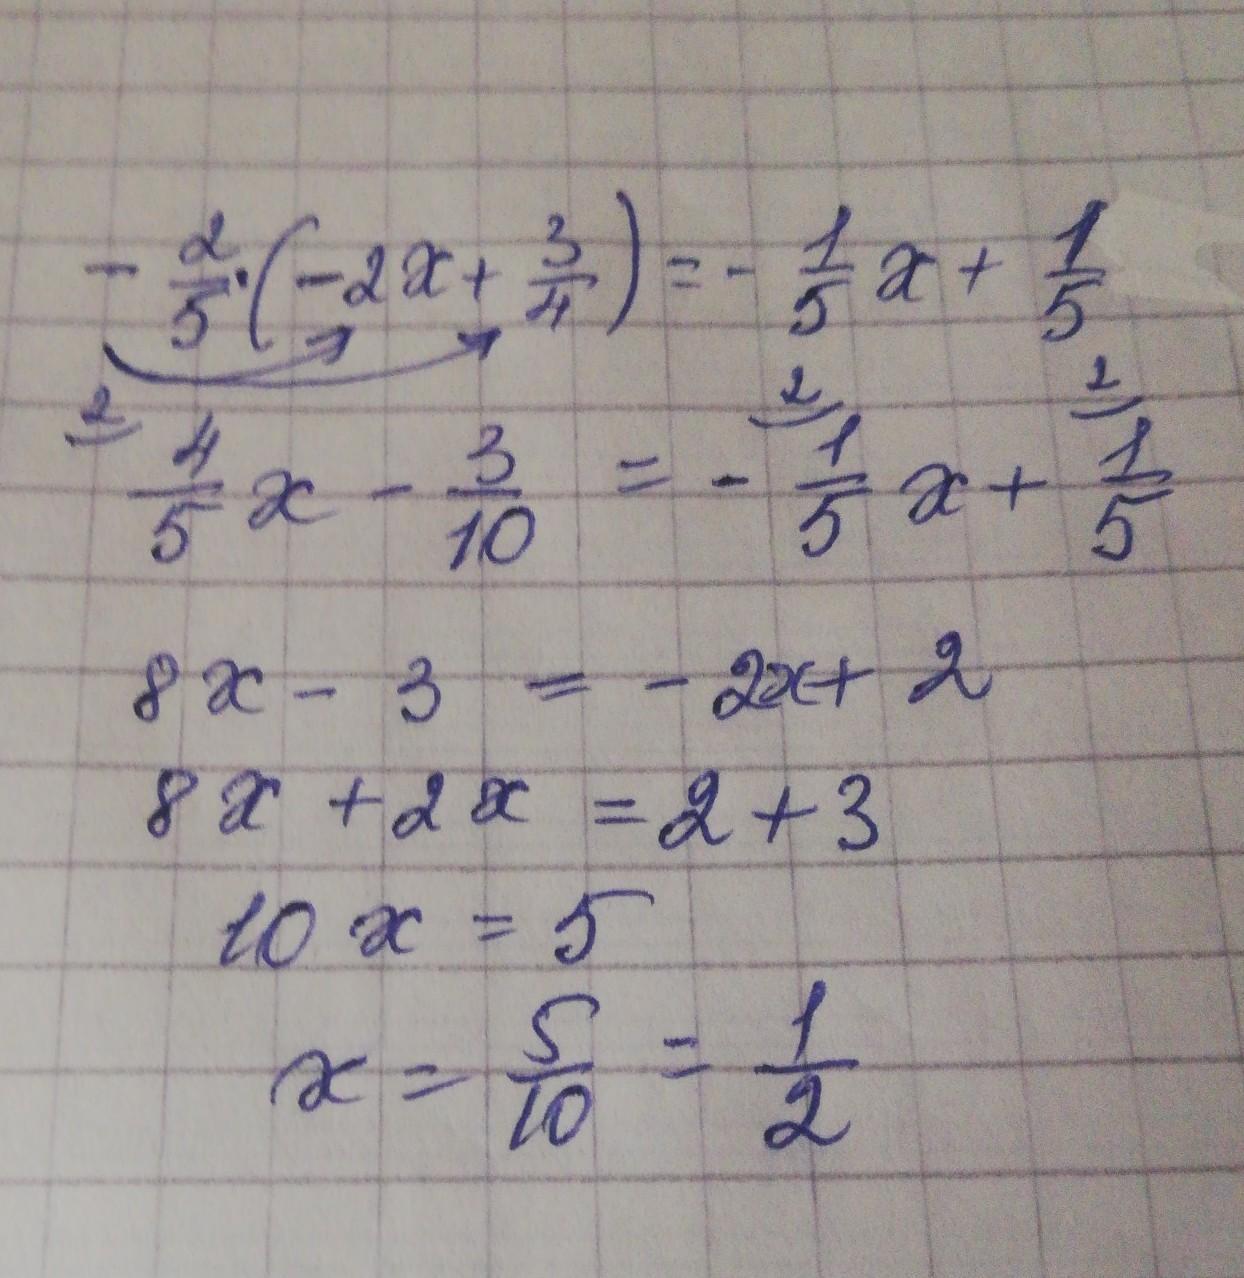 - 2/5 · (-2x + 3/4) = - 1/5 x + 1/5
2 2 2
4/5 x - 3/10 = - 1/5 x + 1/5
8x - 3 = - 2x + 2
8x + 2x = 2 + 3
10x = 5
x = 5/10 = 1/2